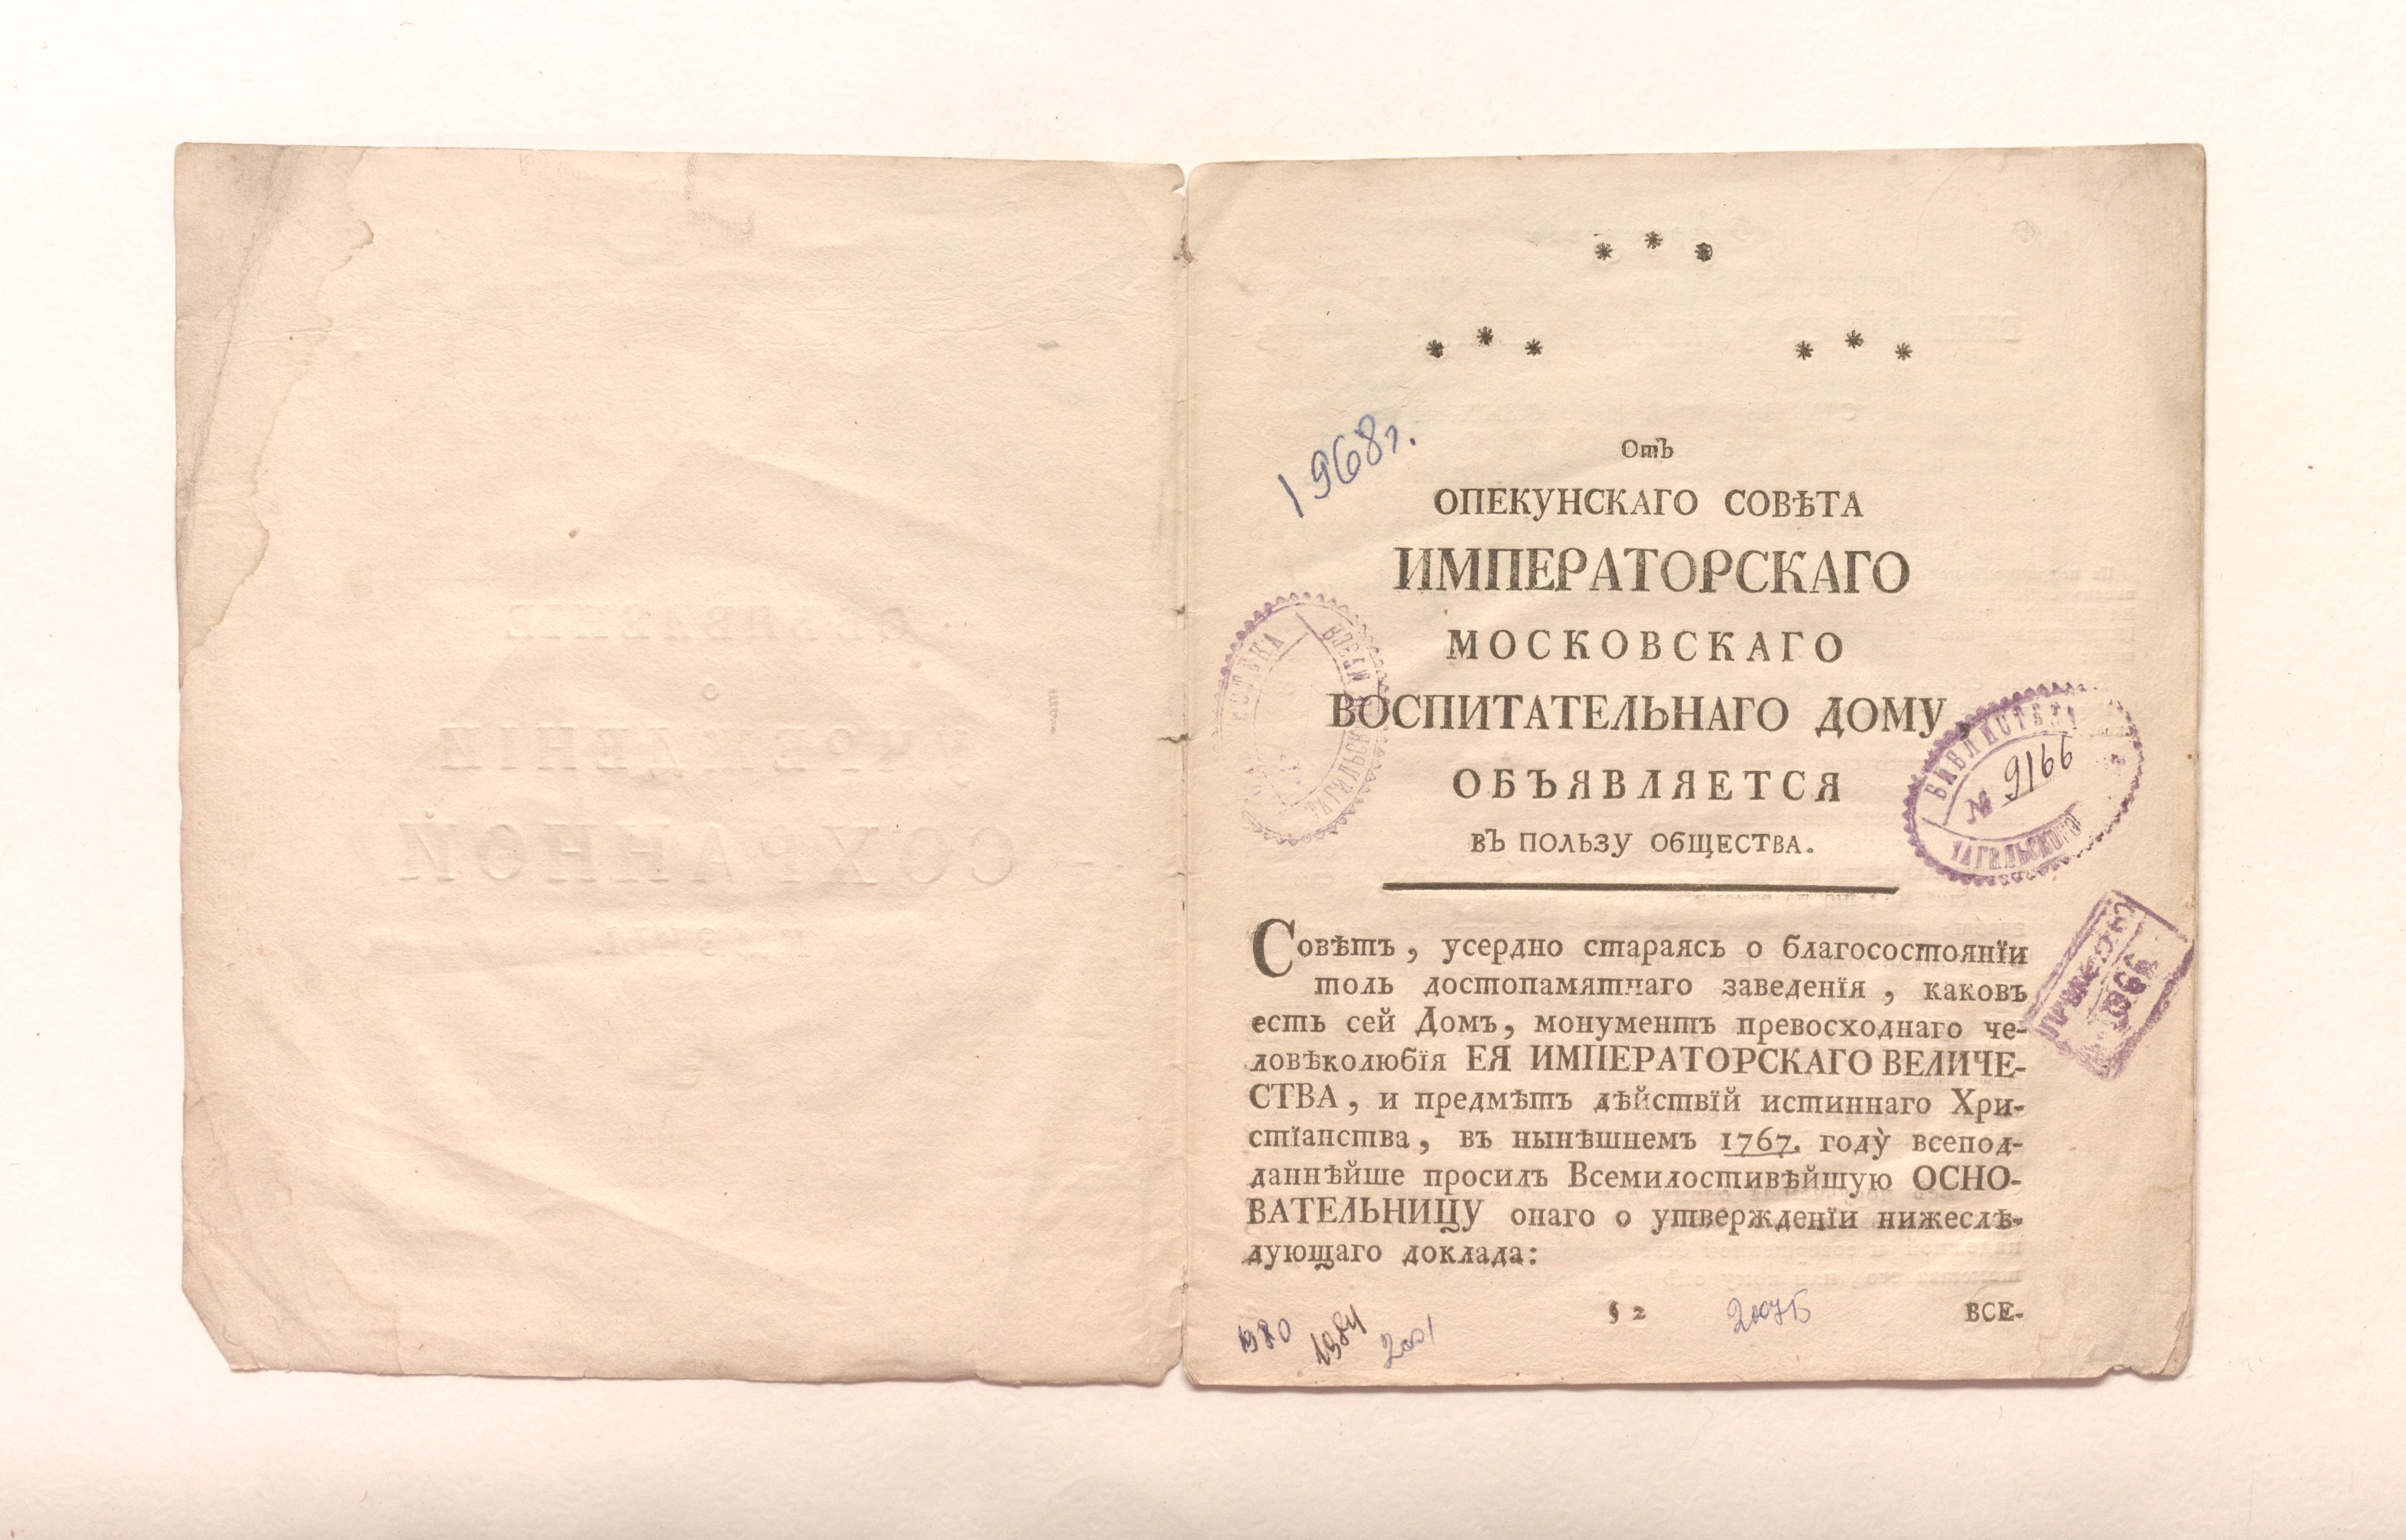 * * *
* * * * * *
1968г.
Отъ
ОПЕКУНСКАГО СОВѢТА
ИМПЕРАТОРСКАГО
МОСКОВСКАГО
ВОСПИТАТЕЛЬНАГО ДОМУ,
ОБЪЯВЛЯЕТСЯ
ВЪ ПОЛЬЗУ ОБЩЕСТВА.
БИБЛИОТЕКА
№ 9166
ТАГИЛЬСКОГО
Совѣтъ, усердно стараясь о благосостоянїи
толь достопамятнаго заведенїя, каковъ
есть сей Домъ, монументъ превосходнаго че-
ловѣколюбїя ЕЯ ИМПЕРАТОРСКАГО ВЕЛИЧЕ-
СТВА, и предмѣтъ дѣйствїй истиннаго Хри-
стїанства, въ нынѣшнемъ 1767. году̀ всепод-
даннѣйше просилъ Всемилостивѣйшую ОСНО-
ВАТЕЛЬНИЦУ онаго о утвержденїи нижеслѣ-
дующаго доклада:
1966
2 ВСЕ-
1980 1984 2001 2007Б
ОБЪЯВЛЕНІЕ
О
УЧРЕЖДЕНІИ
СОХРАННОЙ
КАЗНЫ.